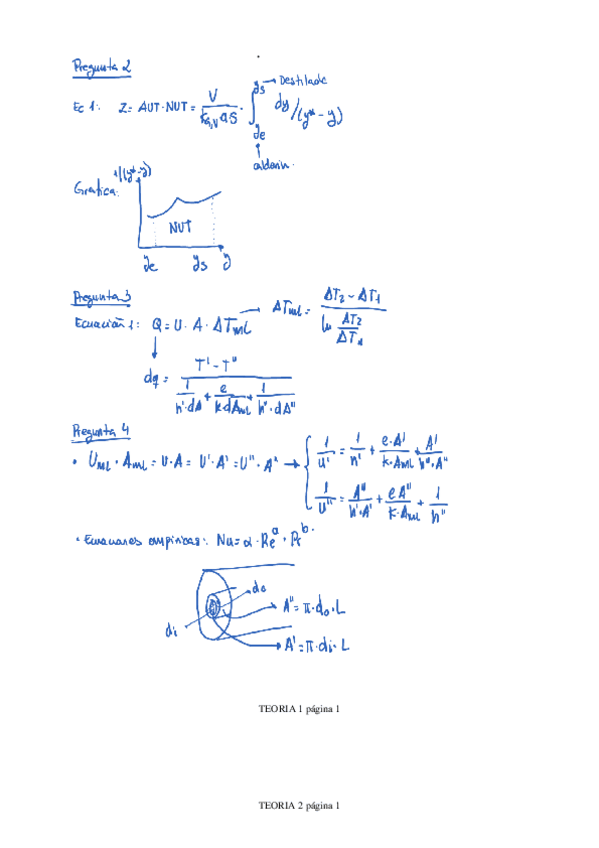 Pregunta 2
ys → Destilado
Ec 1: Z = AUT·NUT = V / (KG,V a S) · ∫ dy/(y* - y)
ye
↑
calderín.
1/(y*-y)
Grafica:
NUT
ye ys y
Pregunta 3
Ecuación 1: Q = U · A · ΔTml → ΔTml = (ΔT2 - ΔT1) / (ln ΔT2/ΔT1)
↓
dq = (T' - T'') / (1/(h'·dA') + e/(k dAml) + 1/(h''·dA''))
Pregunta 4
• Uml · Aml = U·A = U'·A' = U''·A'' → { 1/U' = 1/h' + e·A'/(k·Aml) + A'/(h''·A'')
1/U'' = A''/(h'·A') + e A''/(k·Aml) + 1/h''
• Ecuaciones empíricas: Nu = α · Re^a · Pr^b.
do
di
A'' = π·do·L
A' = π·di·L
TEORIA 1 página 1
TEORIA 2 página 1